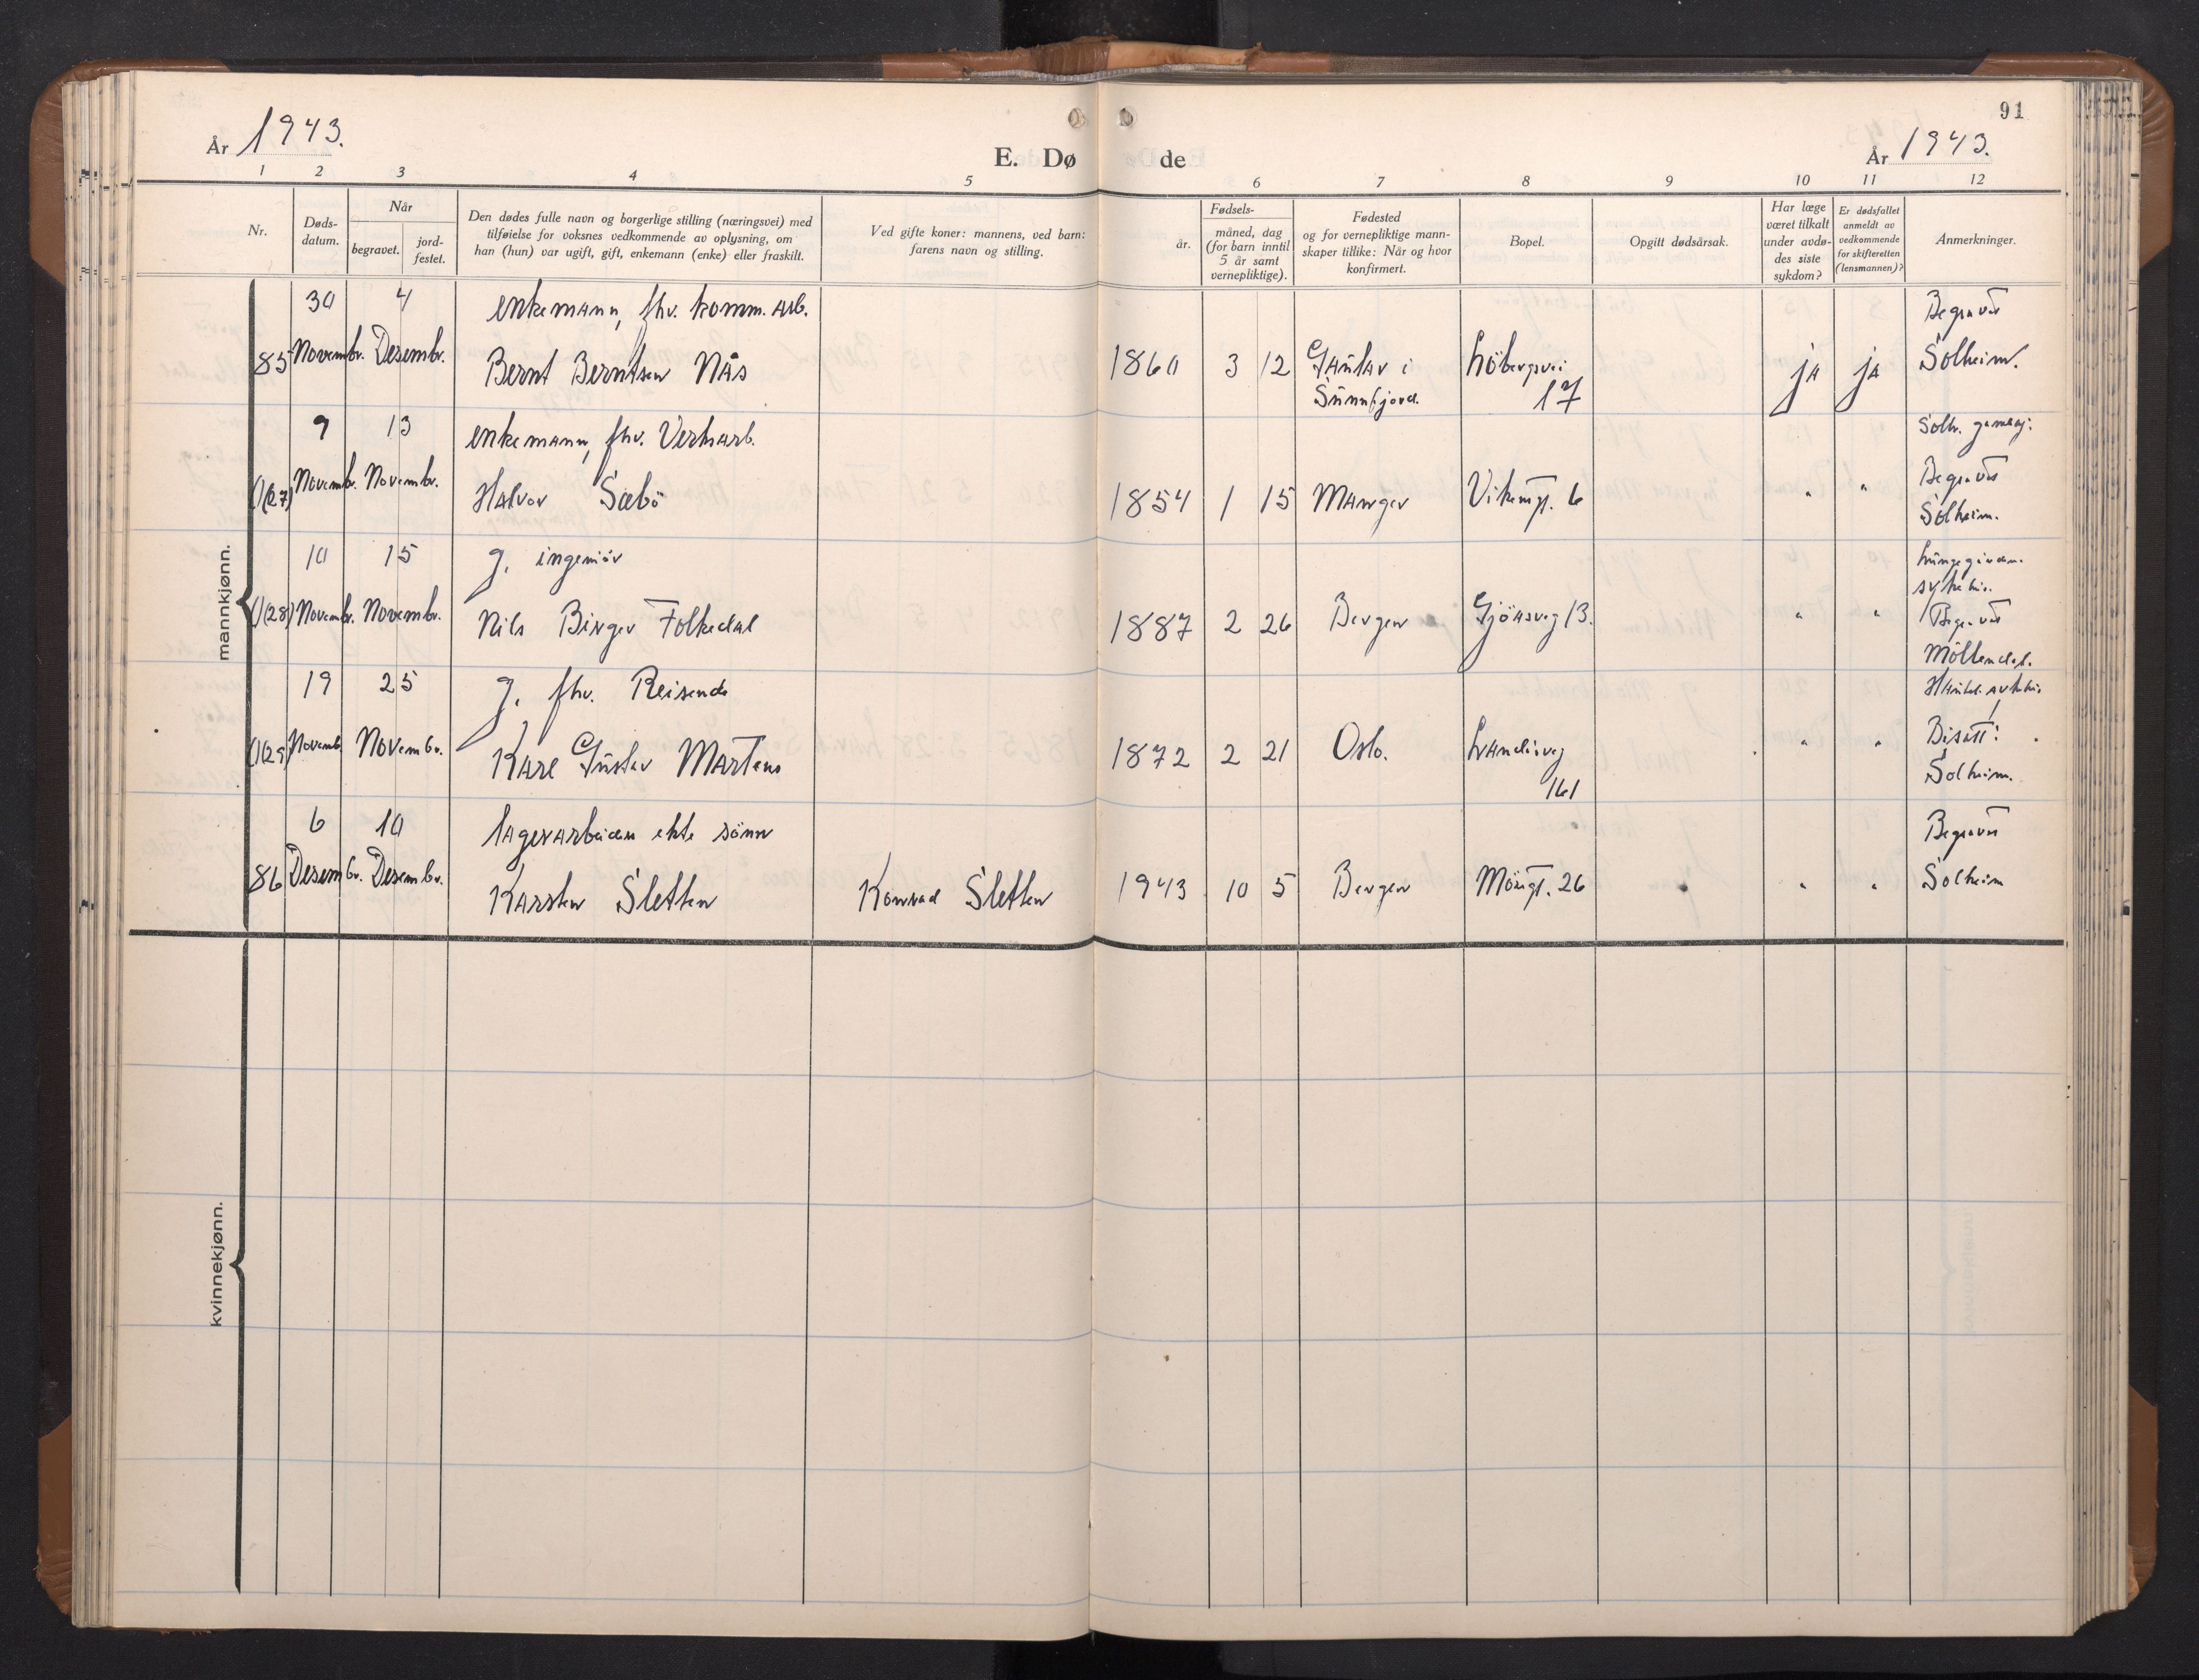 91
År 1943.
E. Dø de
År 1943.
1 2 3 4 5 6 7 8 9 10 11 12
Nr.
Døds-
datum.
Når
begravet.
jord-
festet.
Den dødes fulle navn og borgerlige stilling (næringsvei) med
tilføielse for voksnes vedkommende av oplysning, om
han (hun) var ugift, gift, enkemann (enke) eller fraskilt.
Ved gifte koner: mannens, ved barn:
farens navn og stilling.
Fødsels-
år.
måned, dag
(for barn inntil
5 år samt
vernepliktige).
Fødested
og for vernepliktige mann-
skaper tillike: Når og hvor
konfirmert.
Bopel.
Opgitt dødsårsak.
Har læge
været tilkalt
under avdø-
des siste
sykdom?
Er dødsfallet
anmeldt av
vedkommende
for skifteretten
(lensmannen)?
Anmerkninger.
mannkjønn.
30 4 enkemann, fhv. komm. arb. Begravet
85 Novembr. Desembr. Bernt Berntsen Nås 1860 3 12 Gaular i Löbergsvei ja ja Solheim.
Sunnfjord. 17
9 13 enkemann, fhv. Verksarb. Solh. gamlehj.
(27) Novembr. Novembr. Halvor Sæbö 1854 1 15 Manger Vikengt. 6 " " Begravet
Solheim.
10 15 g. ingeniör
sykehus.
(28) Novembr. Novembr. Nils Birger Folkedal 1887 2 26 Bergen Gjöasveg 13. " " Begravet
Möllendal.
19 25 g. fhv. Reisende Haukel. sykehus
(29) Novemb. Novembr. Karl Gustav Martens 1872 2 21 Oslo. " " Bisatt:
161 Solheim.
6 10 lagerarbeider ekte sönn Begravet
86 Desembr. Desembr. Karsten Sletten Konrad Sletten 1943 10 5 Bergen 26 " " Solheim
kvinnekjønn.